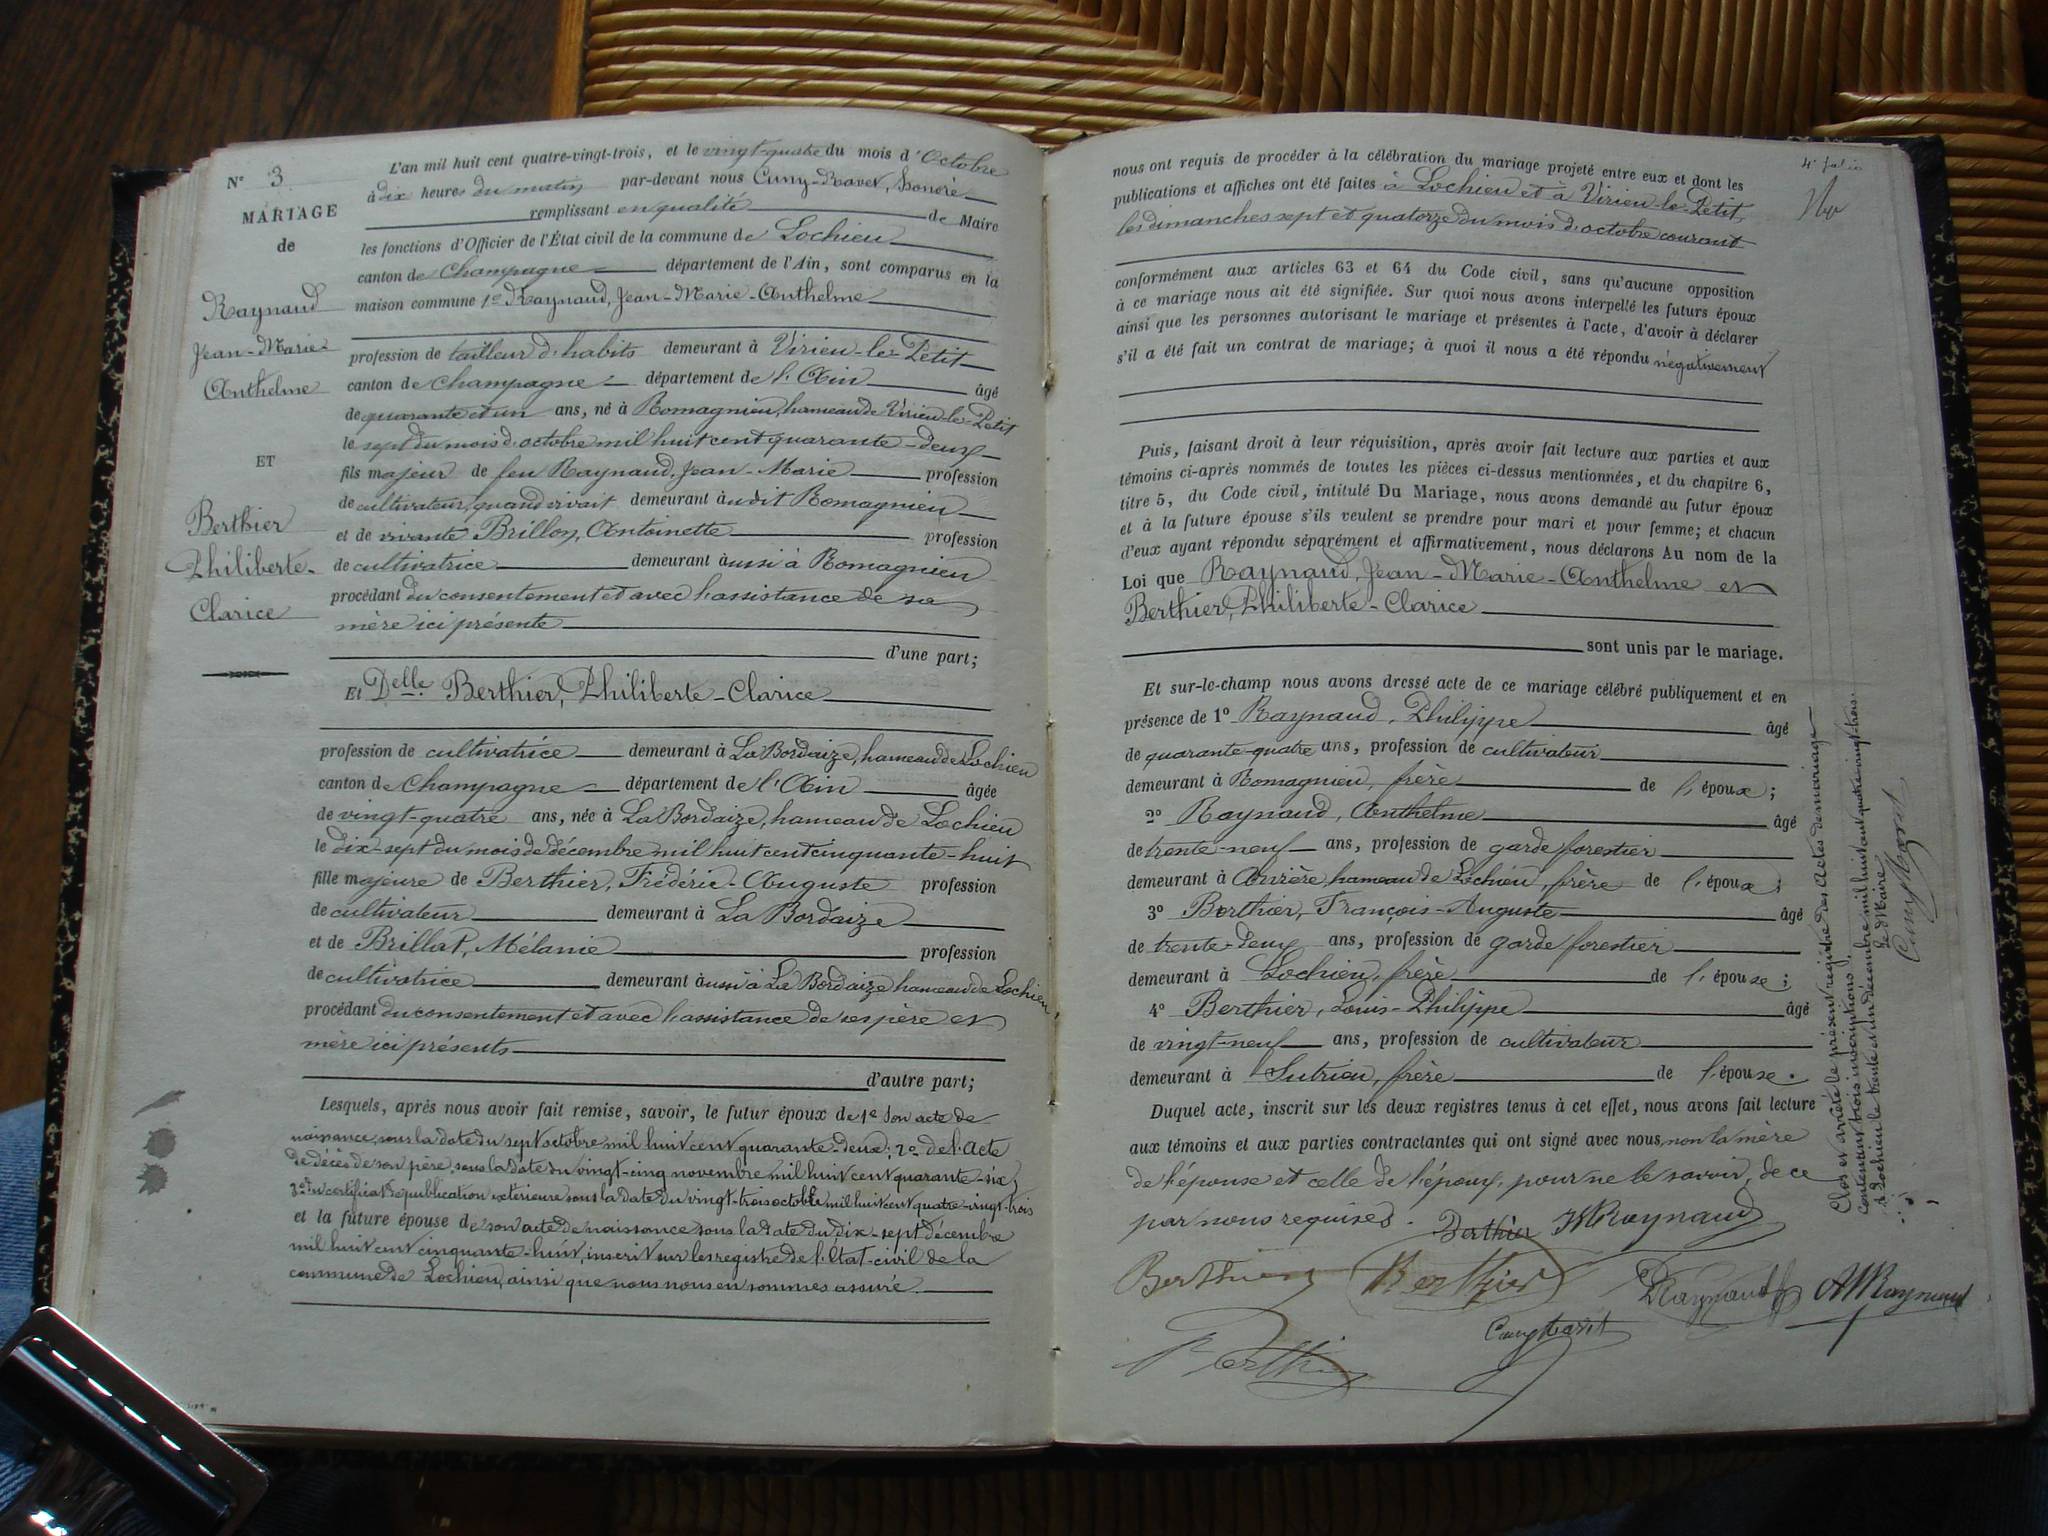 N° 3
MARIAGE
de
Raynaud
Jean-Marie-
Anthelme
ET
Berthier
Philiberte-
Clarice
L'an mil huit cent quatre-vingt-trois, et le vingt-quatre du mois d'Octobre
à dix heures du matin par-devant nous Cuny-Ravet, Honoré
remplissant en qualité de Maire
les fonctions d'Officier de l'État civil de la commune de Lochieu
canton de Champagne département de l'Ain, sont comparus en la
maison commune 1° Raynaud, Jean-Marie-Anthelme
profession de tailleur d'habits demeurant à Virieu-le-Petit
canton de Champagne département de l'Ain âgé
de quarante et un ans, né à Romagnieu, hameau de Virieu-le-Petit
le sept du mois d'octobre mil huit cent quarante-deux
fils majeur de feu Raynaud, Jean-Marie profession
de cultivateur, quand vivait demeurant audit Romagnieu
et de vivante Brillon, Antoinette profession
de cultivatrice demeurant aussi à Romagnieu
procédant du consentement et avec l'assistance de sa
mère ici présente
d'une part;
Et Delle Berthier, Philiberte-Clarice
profession de cultivatrice demeurant à La Bordaize, hameau de Lochieu
canton de Champagne département de l'Ain âgée
de vingt-quatre ans, née à La Bordaize, hameau de Lochieu
le dix-sept du mois de décembre mil huit cent cinquante-huit
fille majeure de Berthier, Frédéric-Auguste profession
de cultivateur demeurant à La Bordaize
et de Brillat, Mélanie profession
de cultivatrice demeurant aussi à La Bordaize hameau de Lochieu
procédant du consentement et avec l'assistance de ses père et
mère ici présents
d'autre part;
Lesquels, après nous avoir fait remise, savoir, le futur époux de 1° son acte de
naissance, sous la date du sept octobre mil huit cent quarante-deux; 2° de l'Acte
de décès de son père, sous la date du vingt-cinq novembre mil huit cent quarante-six;
3° du certificat de publication extérieure sous la date du vingt-trois octobre mil huit cent quatre-vingt-trois
et la future épouse de son acte de naissance sous la date du dix-sept décembre
mil huit cent cinquante-huit, inscrit sur les registre de l'état-civil de la
commune de Lochieu, ainsi que nous nous en sommes assuré.
4e folio
nous ont requis de procéder à la célébration du mariage projeté entre eux et dont les
publications et affiches ont été faites à Lochieu et à Virieu-le-Petit,
les dimanches sept et quatorze du mois d'octobre courant
conformément aux articles 63 et 64 du Code civil, sans qu'aucune opposition
à ce mariage nous ait été signifiée. Sur quoi nous avons interpellé les futurs époux
ainsi que les personnes autorisant le mariage et présentes à l'acte, d'avoir à déclarer
s'il a été fait un contrat de mariage; à quoi il nous a été répondu négativement
Puis, faisant droit à leur réquisition, après avoir fait lecture aux parties et aux
témoins ci-après nommés de toutes les pièces ci-dessus mentionnées, et du chapitre 6,
titre 5, du Code civil, intitulé Du Mariage, nous avons demandé au futur époux
et à la future épouse s'ils veulent se prendre pour mari et pour femme; et chacun
d'eux ayant répondu séparément et affirmativement, nous déclarons Au nom de la
Loi que Raynaud, Jean-Marie-Anthelme et
Berthier, Philiberte-Clarice
sont unis par le mariage.
Et sur-le-champ nous avons dressé acte de ce mariage célébré publiquement et en
présence de 1° Raynaud, Philippe âgé
de quarante-quatre ans, profession de cultivateur
demeurant à Romagnieu, frère de l'époux;
2° Raynaud, Anthelme âgé
de trente-neuf ans, profession de garde forestier
demeurant à hameau de Lochieu, frère de l'époux;
3° Berthier, François-Auguste âgé
de trente-deux ans, profession de garde forestier
demeurant à Lochieu, frère de l'épouse;
4° Berthier, Louis-Philippe âgé
de vingt-neuf ans, profession de cultivateur
demeurant à Sutrieu, frère de l'épouse.
Duquel acte, inscrit sur les deux registres tenus à cet effet, nous avons fait lecture
aux témoins et aux parties contractantes qui ont signé avec nous, non la mère
de l'épouse et celle de l'époux, pour ne le savoir, de ce
par nous requises. Berthier JRaynaud
Berthier Berthier Raynaud ARaynaud
Cuny Ravet
Berthier
Clos et arrêté le présent registre des Actes de mariage
contenant trois inscriptions.
à Lochieu le trente et un décembre mil huit cent quatre vingt trois.
Le Maire
Cuny Ravet